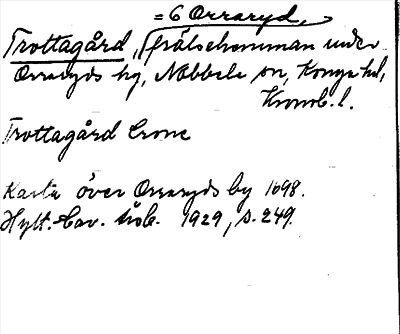 = 6 Orraryd,
Trottagård, frälsehemman under
Orraryds by, Nöbbele sn, Konga hd,
Kronob. l.
Trottagård Crone
Karta över Orraryds by 1698.
Hylt.-Cav. sböc. 1929, s. 249.